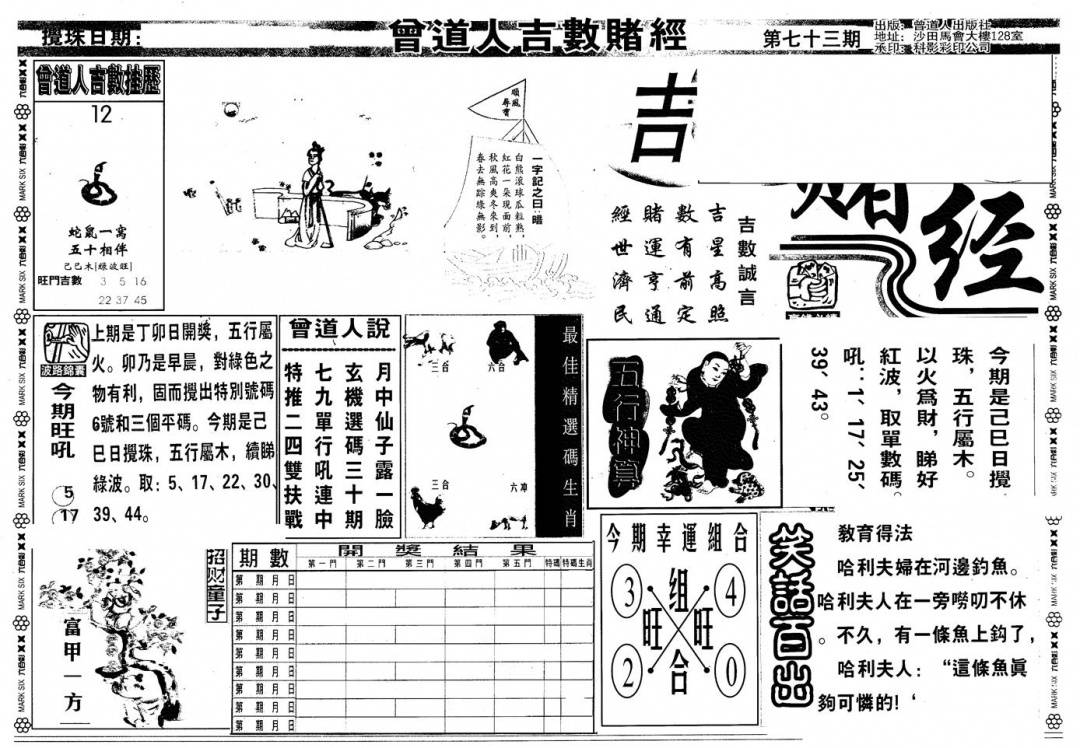 攪珠日期:
曾道人吉數賭經
第七十三期
出版: 曾道人出版社
地址: 沙田馬會大樓128室
承印: 科影彩印公司
曾道人吉數推歷
12
蛇鼠一窩
五十相伴
己己木|綠波旺|
旺門吉數 3 5 16
22 37 45
順風
尋寶
一字記之曰:暗
白熊滾球瓜粒熟,
紅花一朵現面前,
秋風高爽冬來到,
春去無踪緣無影。
吉
賭经
吉數誠言
吉星高照
數有前定
賭運亨通
經世濟民
波路錦囊
今期旺吼
5
17
上期是丁卯日開獎，五行屬
火。卯乃是早晨，對綠色之
物有利，固而攪出特別號碼
6號和三個平碼。今期是己
巳日攪珠，五行屬木，續睇
綠波。取：5、17、22、30、
39、44。
曾道人說
月中仙子露一臉
玄機選碼三十期
七九單行吼連中
特推二四雙扶戰
三合
六合
三合
六冲
最佳精選碼生肖
五行神算
今期是己巳日攪
珠，五行屬木。
以火爲財，睇好
紅波，取單數碼。
吼：1、17、25、
39、43。
富甲一方
招财童子
期數
開獎結果
第一門 第二門 第三門 第四門 第五門 特碼 特碼生肖
第 期 月 日
第 期 月 日
第 期 月 日
第 期 月 日
第 期 月 日
第 期 月 日
第 期 月 日
第 期 月 日
第 期 月 日
今期幸運組合
3 组 4
旺 旺
2 合 0
笑話百出
教育得法
哈利夫婦在河邊釣魚。
哈利夫人在一旁嘮叨不休
。不久，有一條魚上鈎了，
哈利夫人：“這條魚眞
夠可憐的!‘